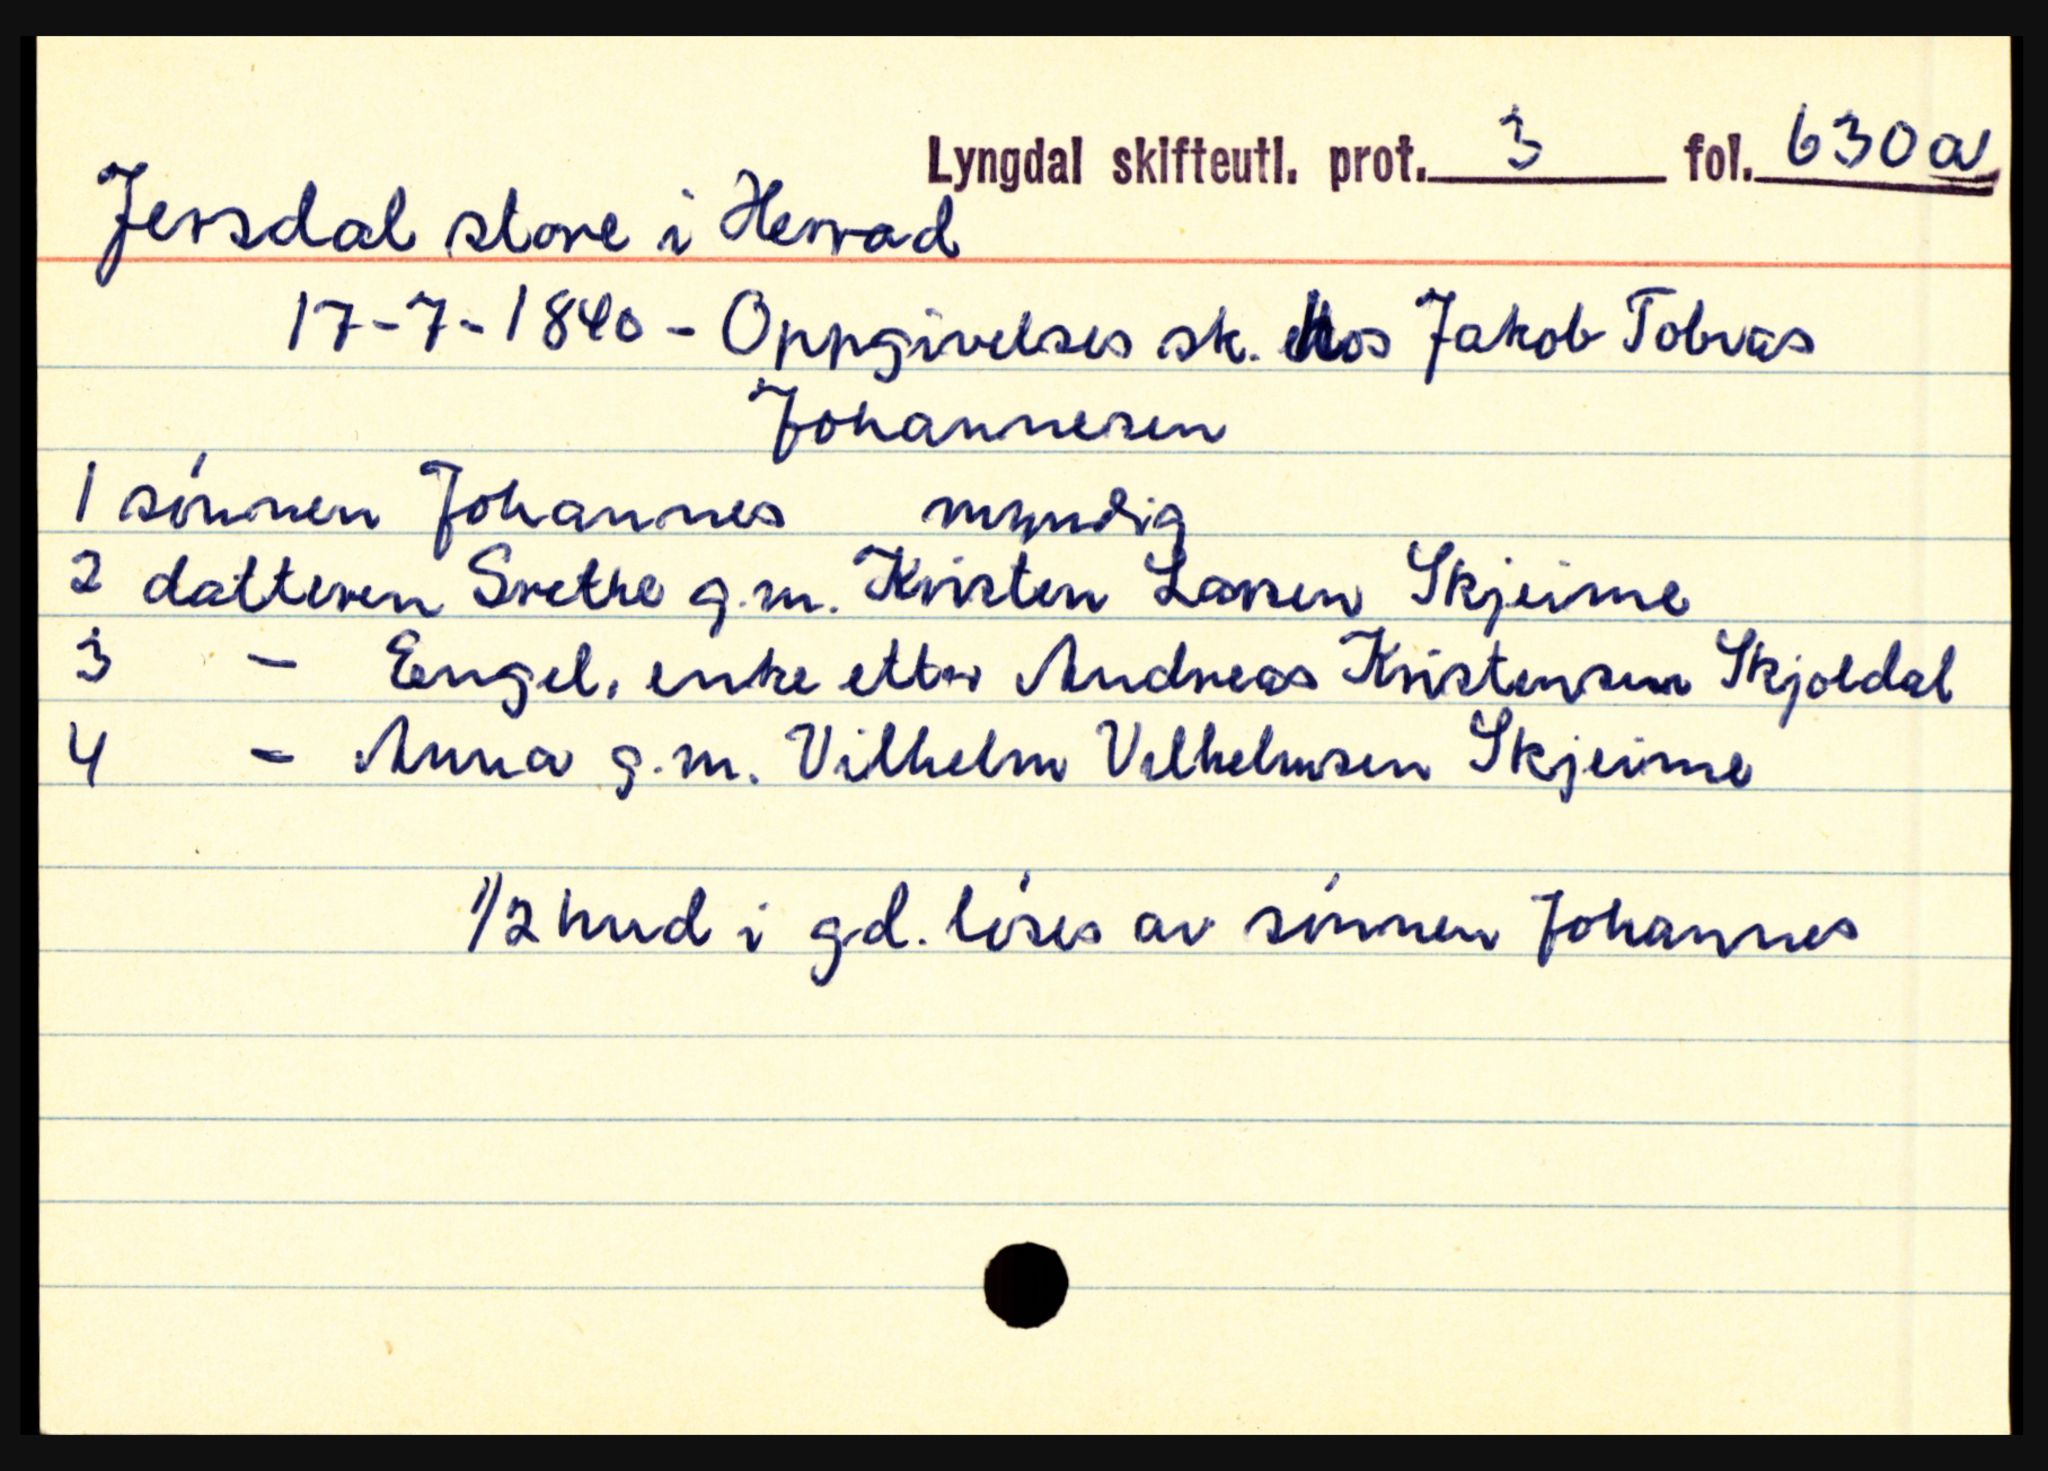 Lyngdal skifteutl. prot. 3 fol. 630a
Jersdal store i Herrad
17-7-1840 - Oppgivelses sk. hos Jakob Tobias
Johannesen
1 sónnen Johannes myndig
2 datteren Grethe g.m. Kristen Larsen Skjeime
3 - Engel, enke etter Andreas Kristensen Skjoldal
4 - Anna g.m. Vilhelm Vilhelmsen Skjeime
1/2 hud i gd. lóses av sónnen Johannes